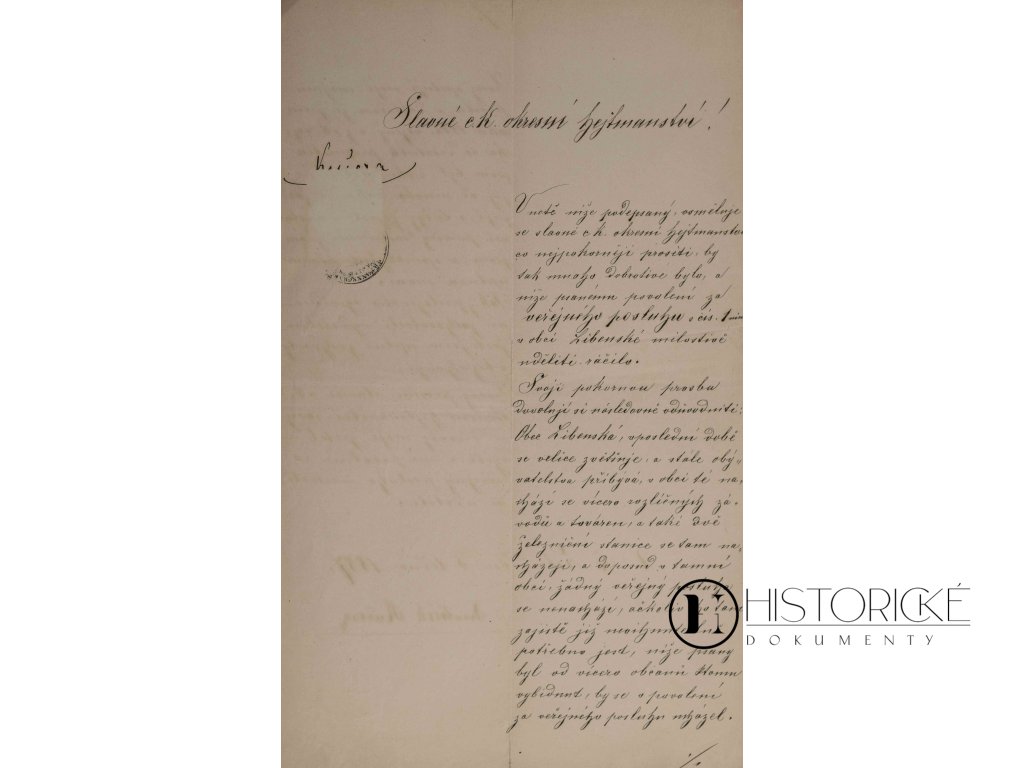 Slavné c. k. okresní Hejtmanství!
V uctě níže podepsaný, osměluje
se slavné c. k. okresní Hejtmanství
co nejpokorněji prositi, by
tak mnoho dobrotivé bylo, a
níže psanému povolení za
veřejného posluhu s čís. 1
v obci Libenské milostivě
uděliti ráčilo.
Svoji pokornou prosbu
dovolují si následovně odůvodniti:
Obec Libenská, v poslední době
se velice zvětšuje, a stále oby-
vatelstva přibývá, v obci té na-
chází se vícero rozličných zá-
vodů a továren, a také dvě
železniční stanice se tam na-
cházejí, a doposud v tamní
obci, žádný veřejný posluha
se nenachází, ačkoliv ho tam
zajistě již
potřebno jest, níže psaný
byl od vícero občanů ktomu
vybídnut, by se o povolení
za veřejného posluhu ucházel.
./.
HISTORICKÉ
DOKUMENTY